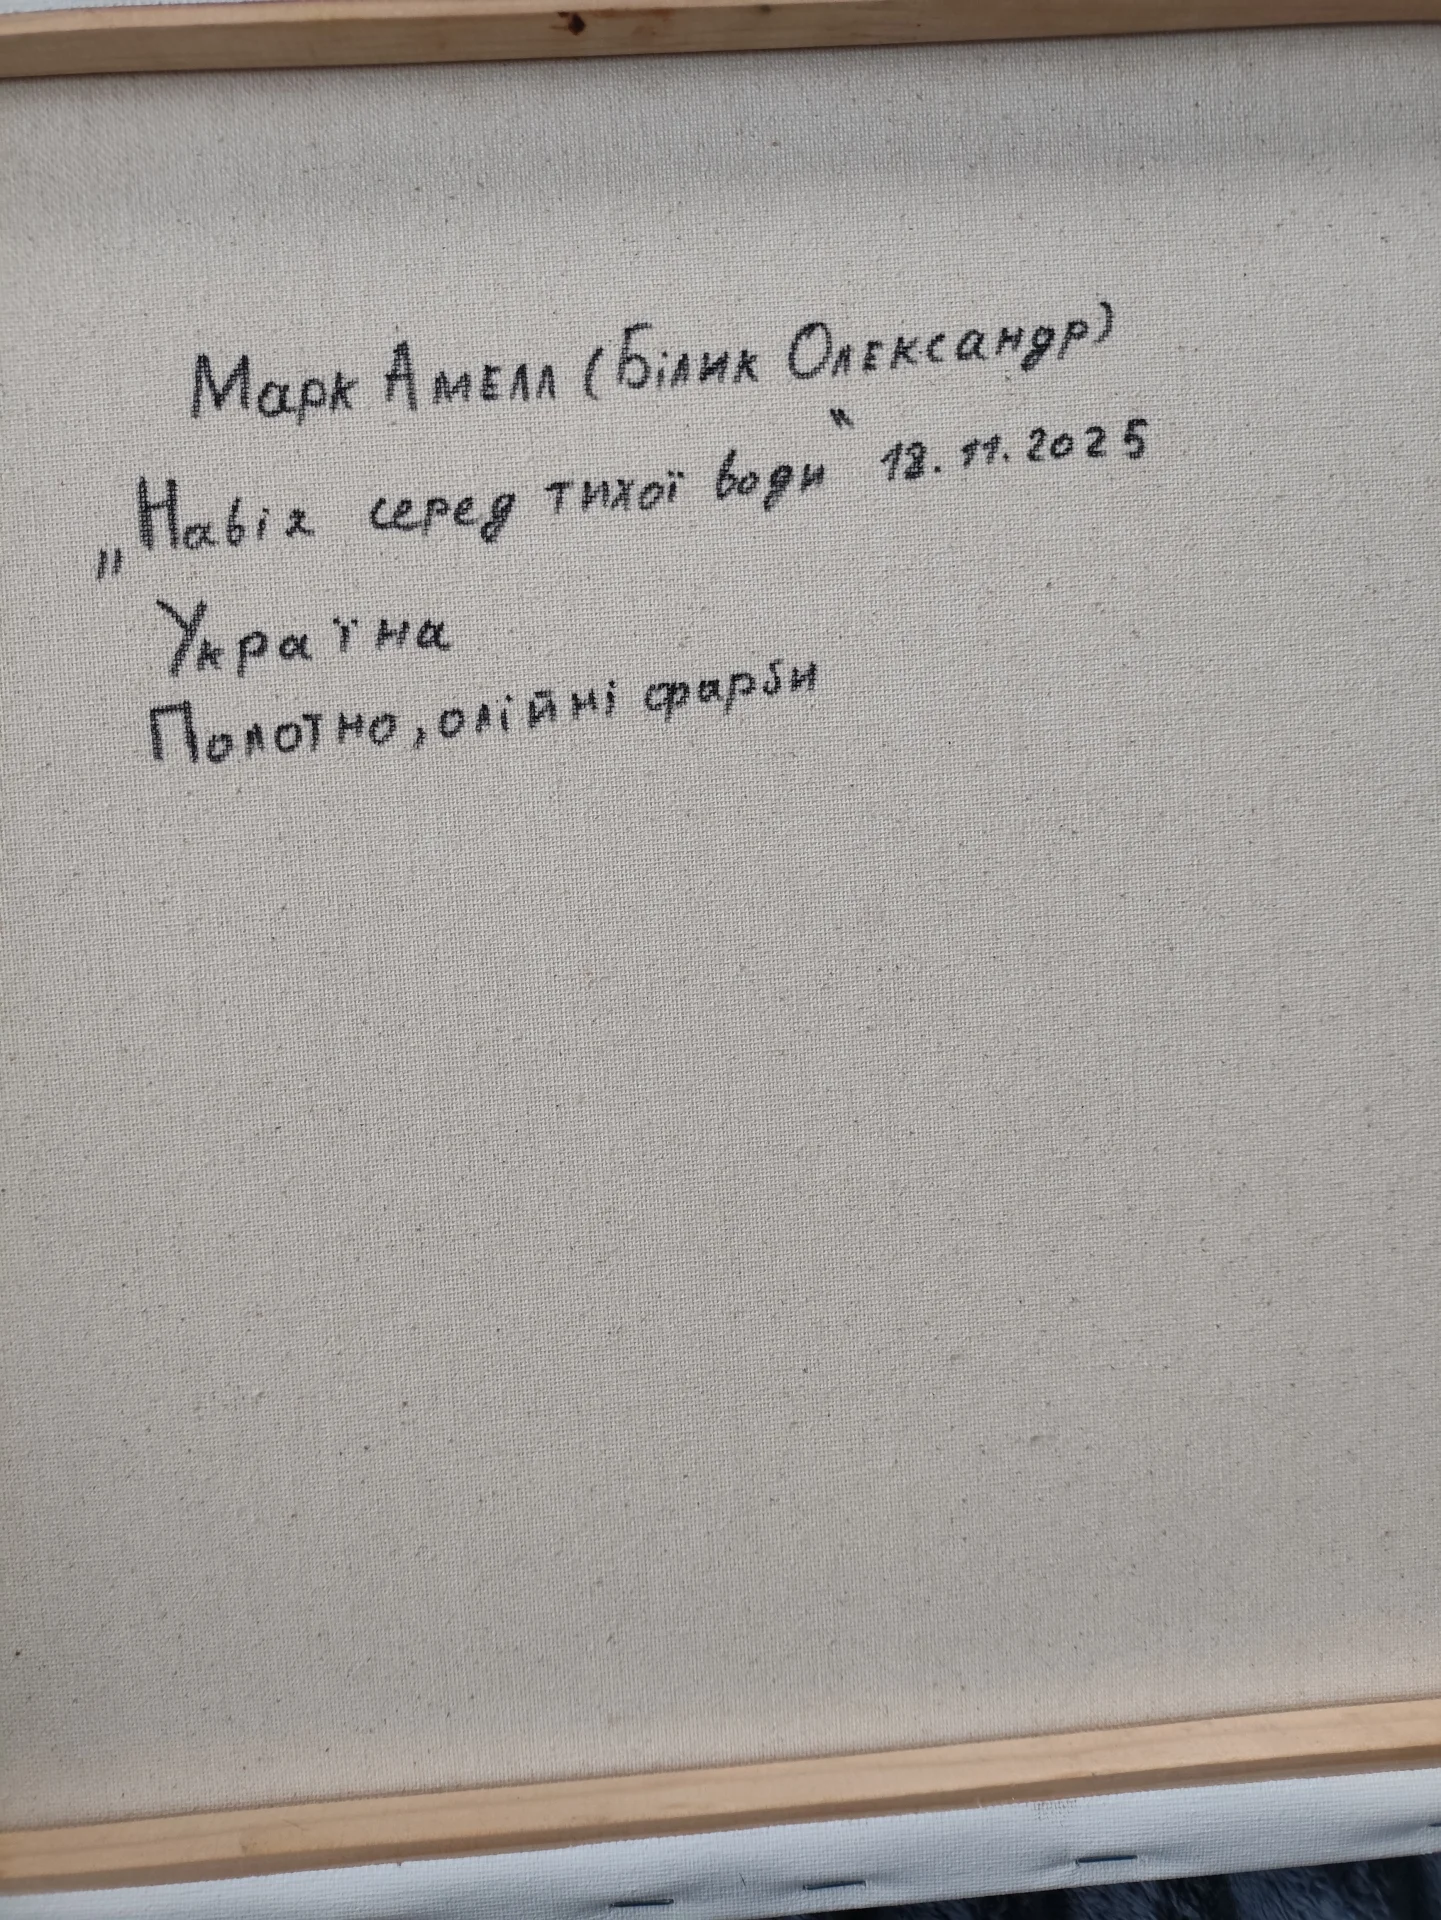 Марк Амелл (Білик Олександр)
„Навіх серед тихої води" 18.11.2025
Україна
Полотно, олійні фарби